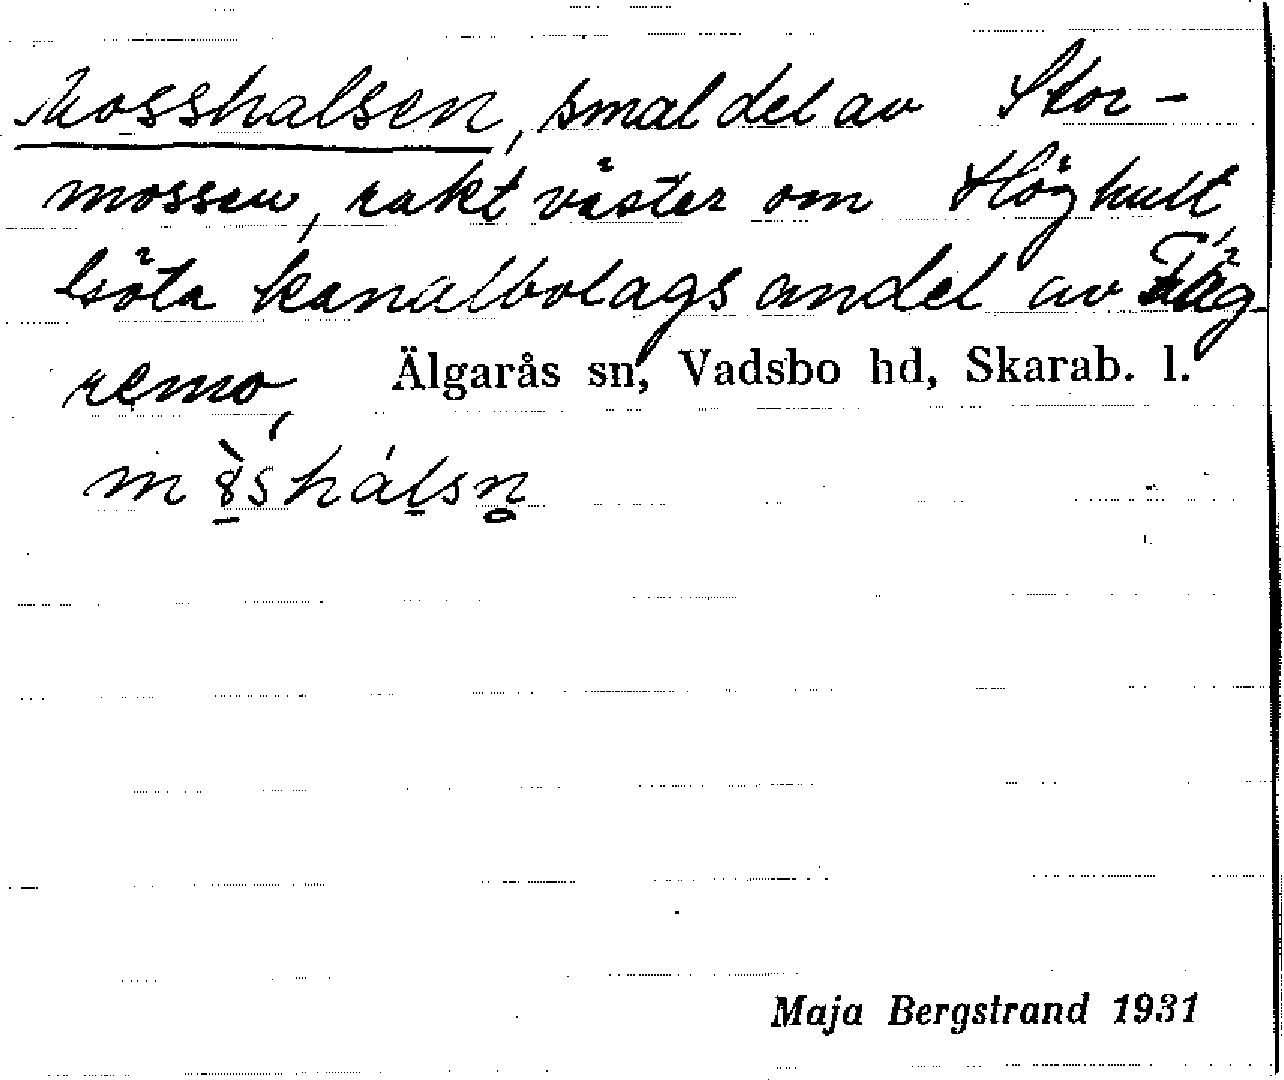 Mosshalsen, smal del av Stor-
mossen, rakt väster om Höghult,
Göta kanalbolags andel av Fäg-
remo,
Älgarås sn, Vadsbo hd, Skarab. l.
Maja Bergstrand 1931